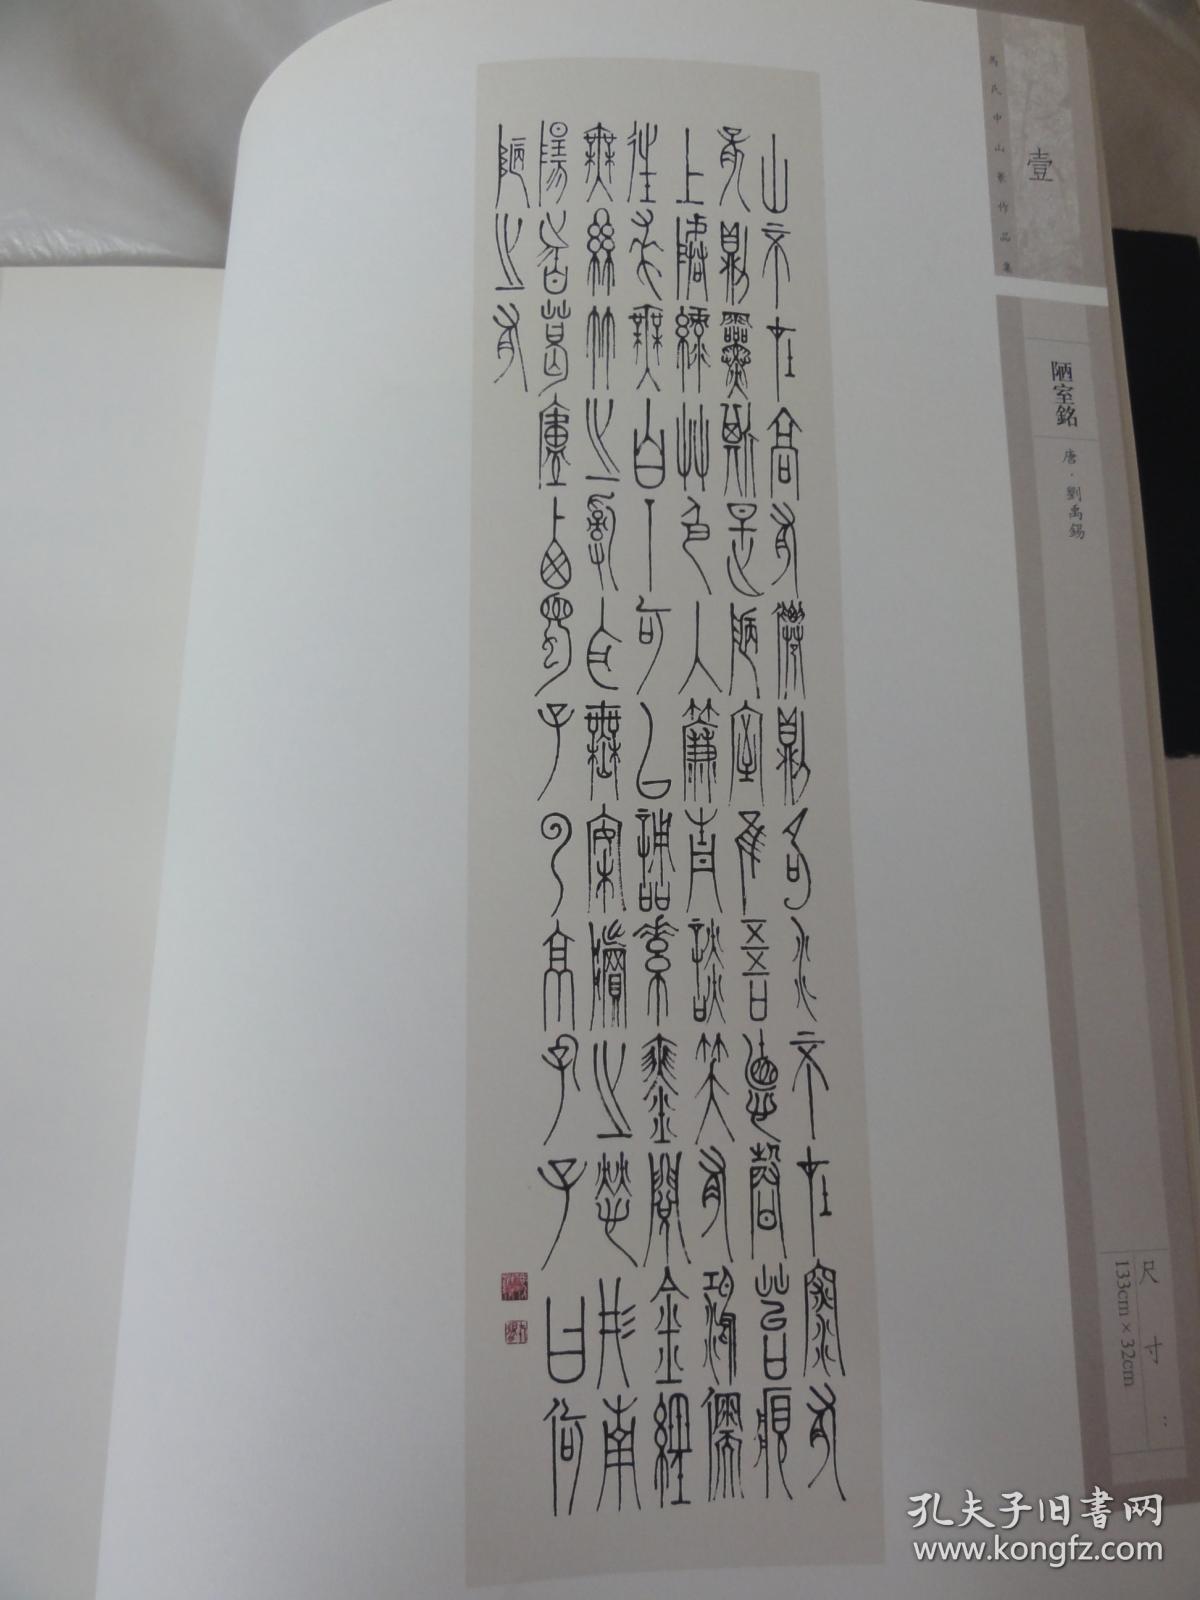 馬氏中山篆作品集
壹
陋室銘
唐·劉禹錫
尺寸：
133cm×32cm
山不在高有僊則名水不在深有
龍則靈斯是陋室惟吾德馨苔痕
上階綠草色入簾青談笑有鴻儒
往來無白丁可以調素琴閱金經
無絲竹之亂耳無案牘之勞形南
陽諸葛廬西蜀子雲亭孔子曰何
陋之有
孔夫子旧书网
www.kongfz.com